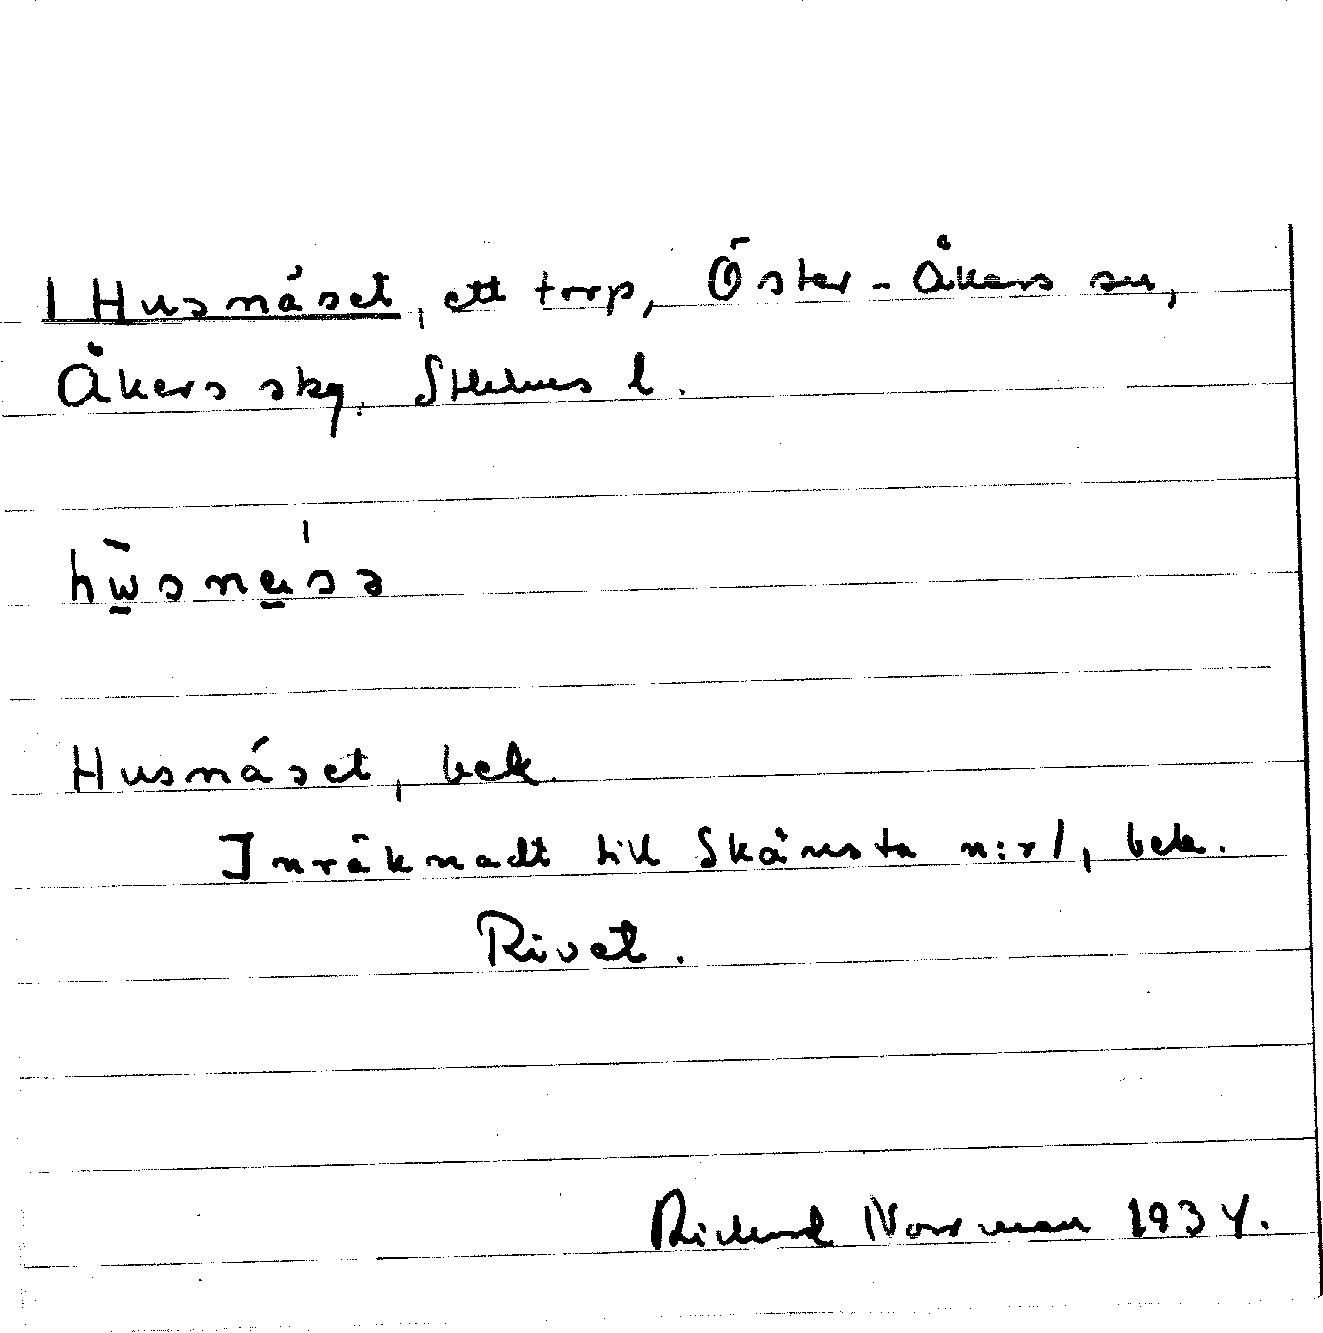 1 Husnäset, ett torp, Öster-Åkers sn,
Åkers skg. Sthlms l.
hẁsnæsə
Husnäset, bek.
Inräknadt till Skånsta n:r 1, bek.
Rivet.
Richard Norrman 1934.